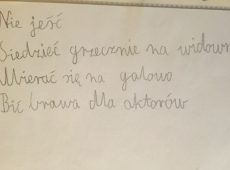 Nie jeść
Siedzieć grzecznie na widown
Ubierać się na galowo
Bić brawa dla aktorów